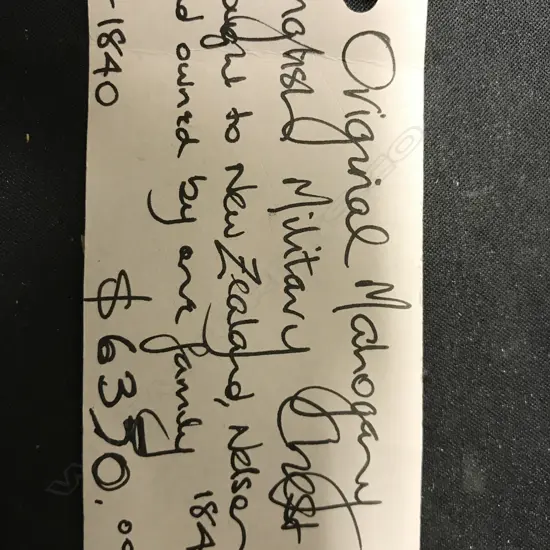 Original Mahogany
nglish Military Chest
ought to New Zealand, Nelson 184
d owned by one family
-1840 $6350.00